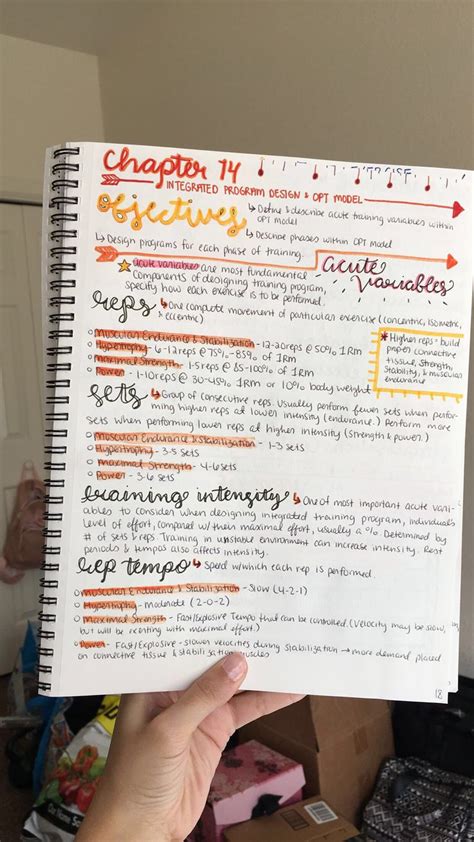 Chapter 14
INTEGRATED PROGRAM DESIGN & OPT MODEL
objectives
↳ Define & describe acute training variables within
OPT model
↳ Describe phases within OPT Model
↳ Design programs for each phase of training.
acute variables
☆ acute variables are most fundamental
Components of designing training program,
specify how each exercise is to be performed.
reps ↳ One complete movement of particular exercise (concentric, isometric,
& eccentric)
○ Muscular Endurance & Stabilization - 12-20 reps @ 50% 1RM
○ Hypertrophy - 6-12 reps @ 75%-85% of 1RM
○ Maximal Strength - 1-5 reps @ 85-100% of 1RM
○ Power - 1-10 reps @ 30-45% 1RM or 10% body weight
★ Higher reps = build
connective
tissue, Strength,
Stability, & muscular
endurance
sets ↳ Group of consecutive reps. Usually perform fewer sets when perfor-
ming higher reps at lower intensity (endurance.) Perform more
sets when performing lower reps at higher intensity (strength & power.)
○ Muscular Endurance & Stabilization - 1-3 sets
○ Hypertrophy - 3-5 sets
○ Maximal Strength - 4-6 sets
○ Power - 3-6 sets
training intensity ↳ One of most important acute vari-
ables to consider when designing integrated training program, individual's
level of effort, compared w/ their maximal effort, usually a %. Determined by
# of sets & reps. Training in unstable environment can increase intensity. Rest
periods & tempos also affects intensity.
rep tempo ↳ Speed w/ which each rep is performed.
○ Muscular Endurance & Stabilization - Slow (4-2-1)
○ Hypertrophy - moderate (2-0-2)
○ Maximal Strength - Fast/Explosive Tempo that can be controlled. (Velocity may be slow,
but will be exerting with maximal effort.)
○ Power - Fast/Explosive - slower velocities during stabilization → more demand placed
on connective tissue & stabilization muscles
18